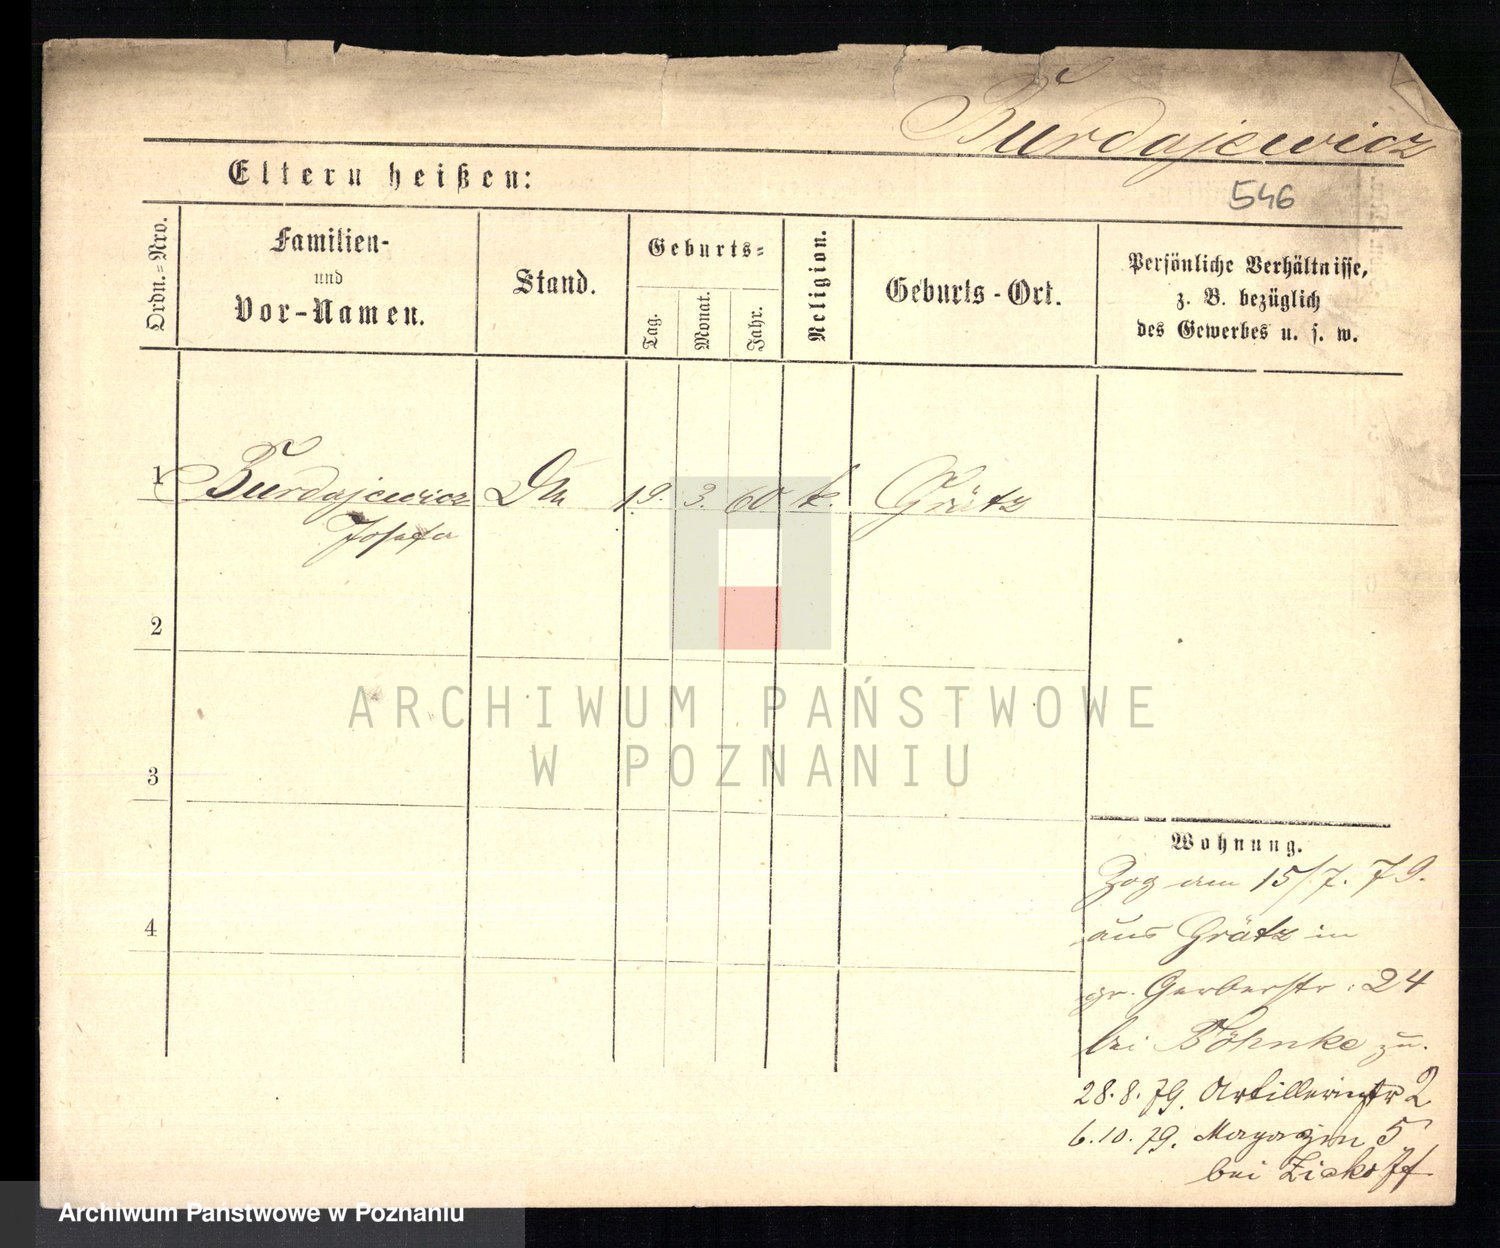 Burdajewicz
546
Eltern heißen:
Ordn.-Nro.
Familien-
und
Vor-Namen.
Stand.
Geburts-
Tag.
Monat.
Jahr.
Religion.
Geburts-Ort.
Persönliche Verhältnisse,
z. B. bezüglich
des Gewerbes u. s. w.
1 Burdajewicz 19. 3. 60 k. Grätz
Josefa
2
3
4
Wohnung.
Zog am 15/7. 79.
aus Grätz in
gr. Gerberstr: 24
bei Böhnke zu.
28.8.79. Artilleriestr 2
6.10.79. Magazin 5
bei Zickoff
ARCHIWUM PAŃSTWOWE
W POZNANIU
Archiwum Państwowe w Poznaniu